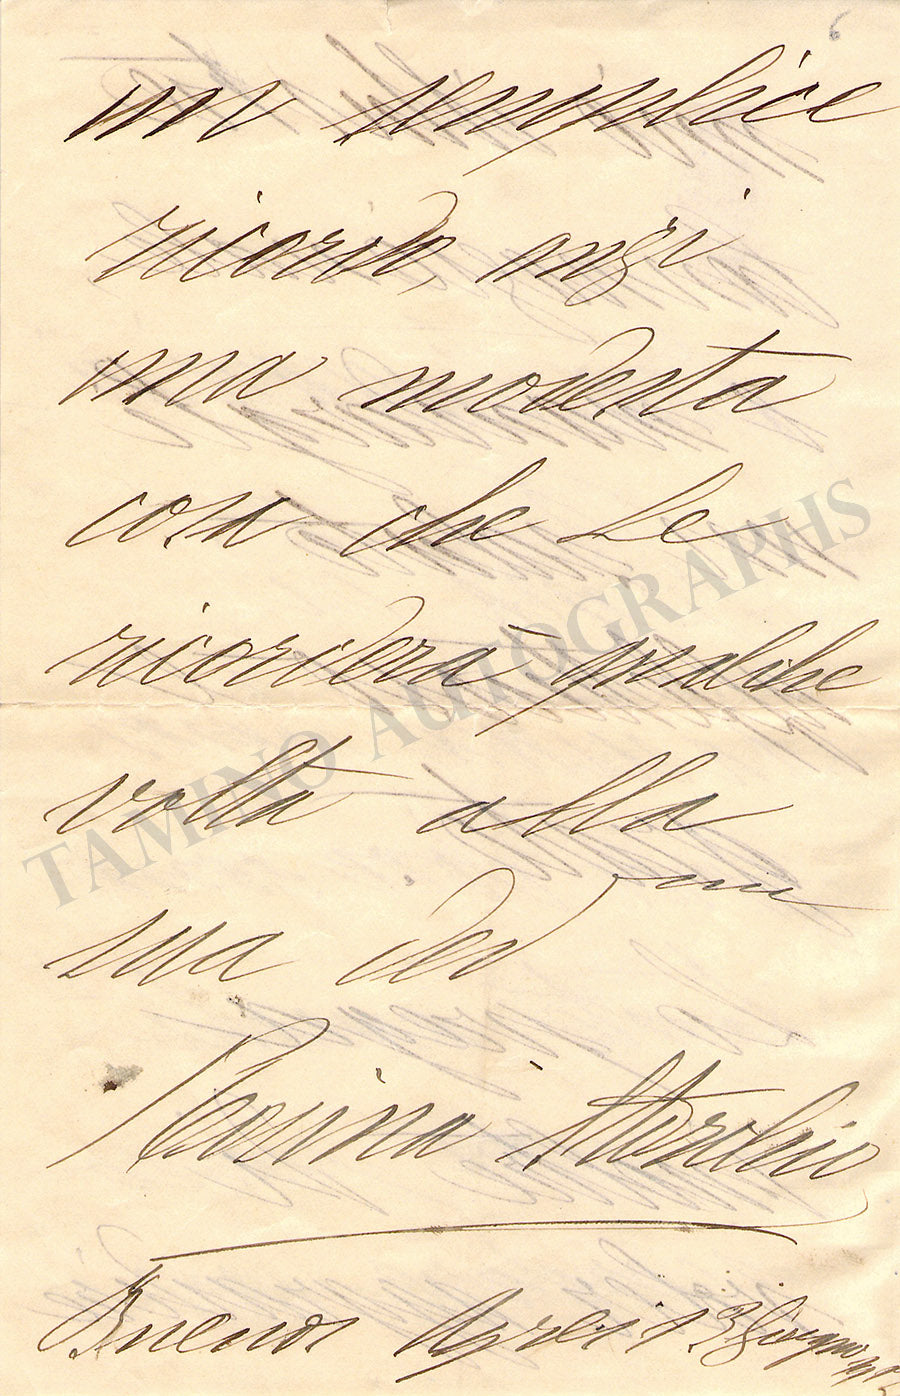 6
un semplice
ricordo, anzi
una modesta
cosa che Le
ricorderà qualche
volta alla
sua dev
Rosina Storchio
Buenos Ayres 13 Giugno
TAMINO AUTOGRAPHS